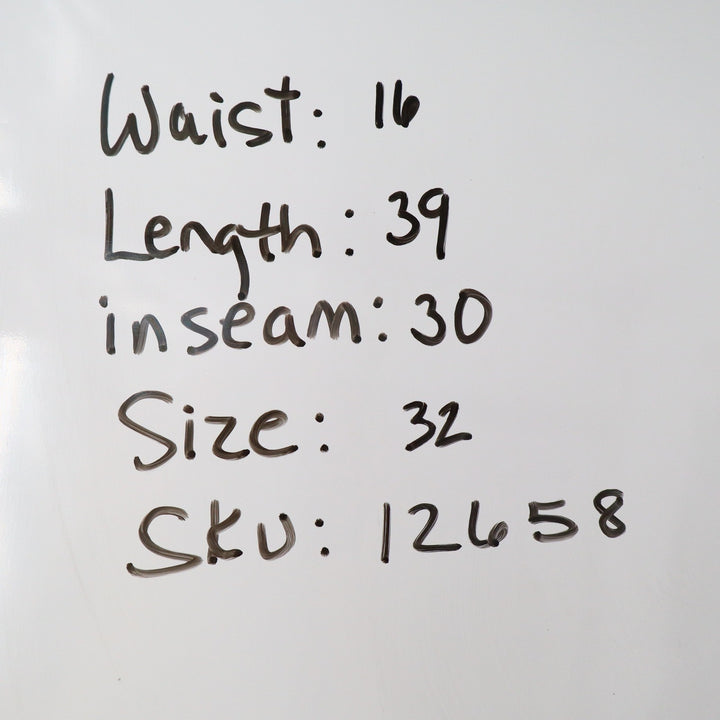 Waist: 16
Length: 39
inseam: 30
Size: 32
Sku: 12658